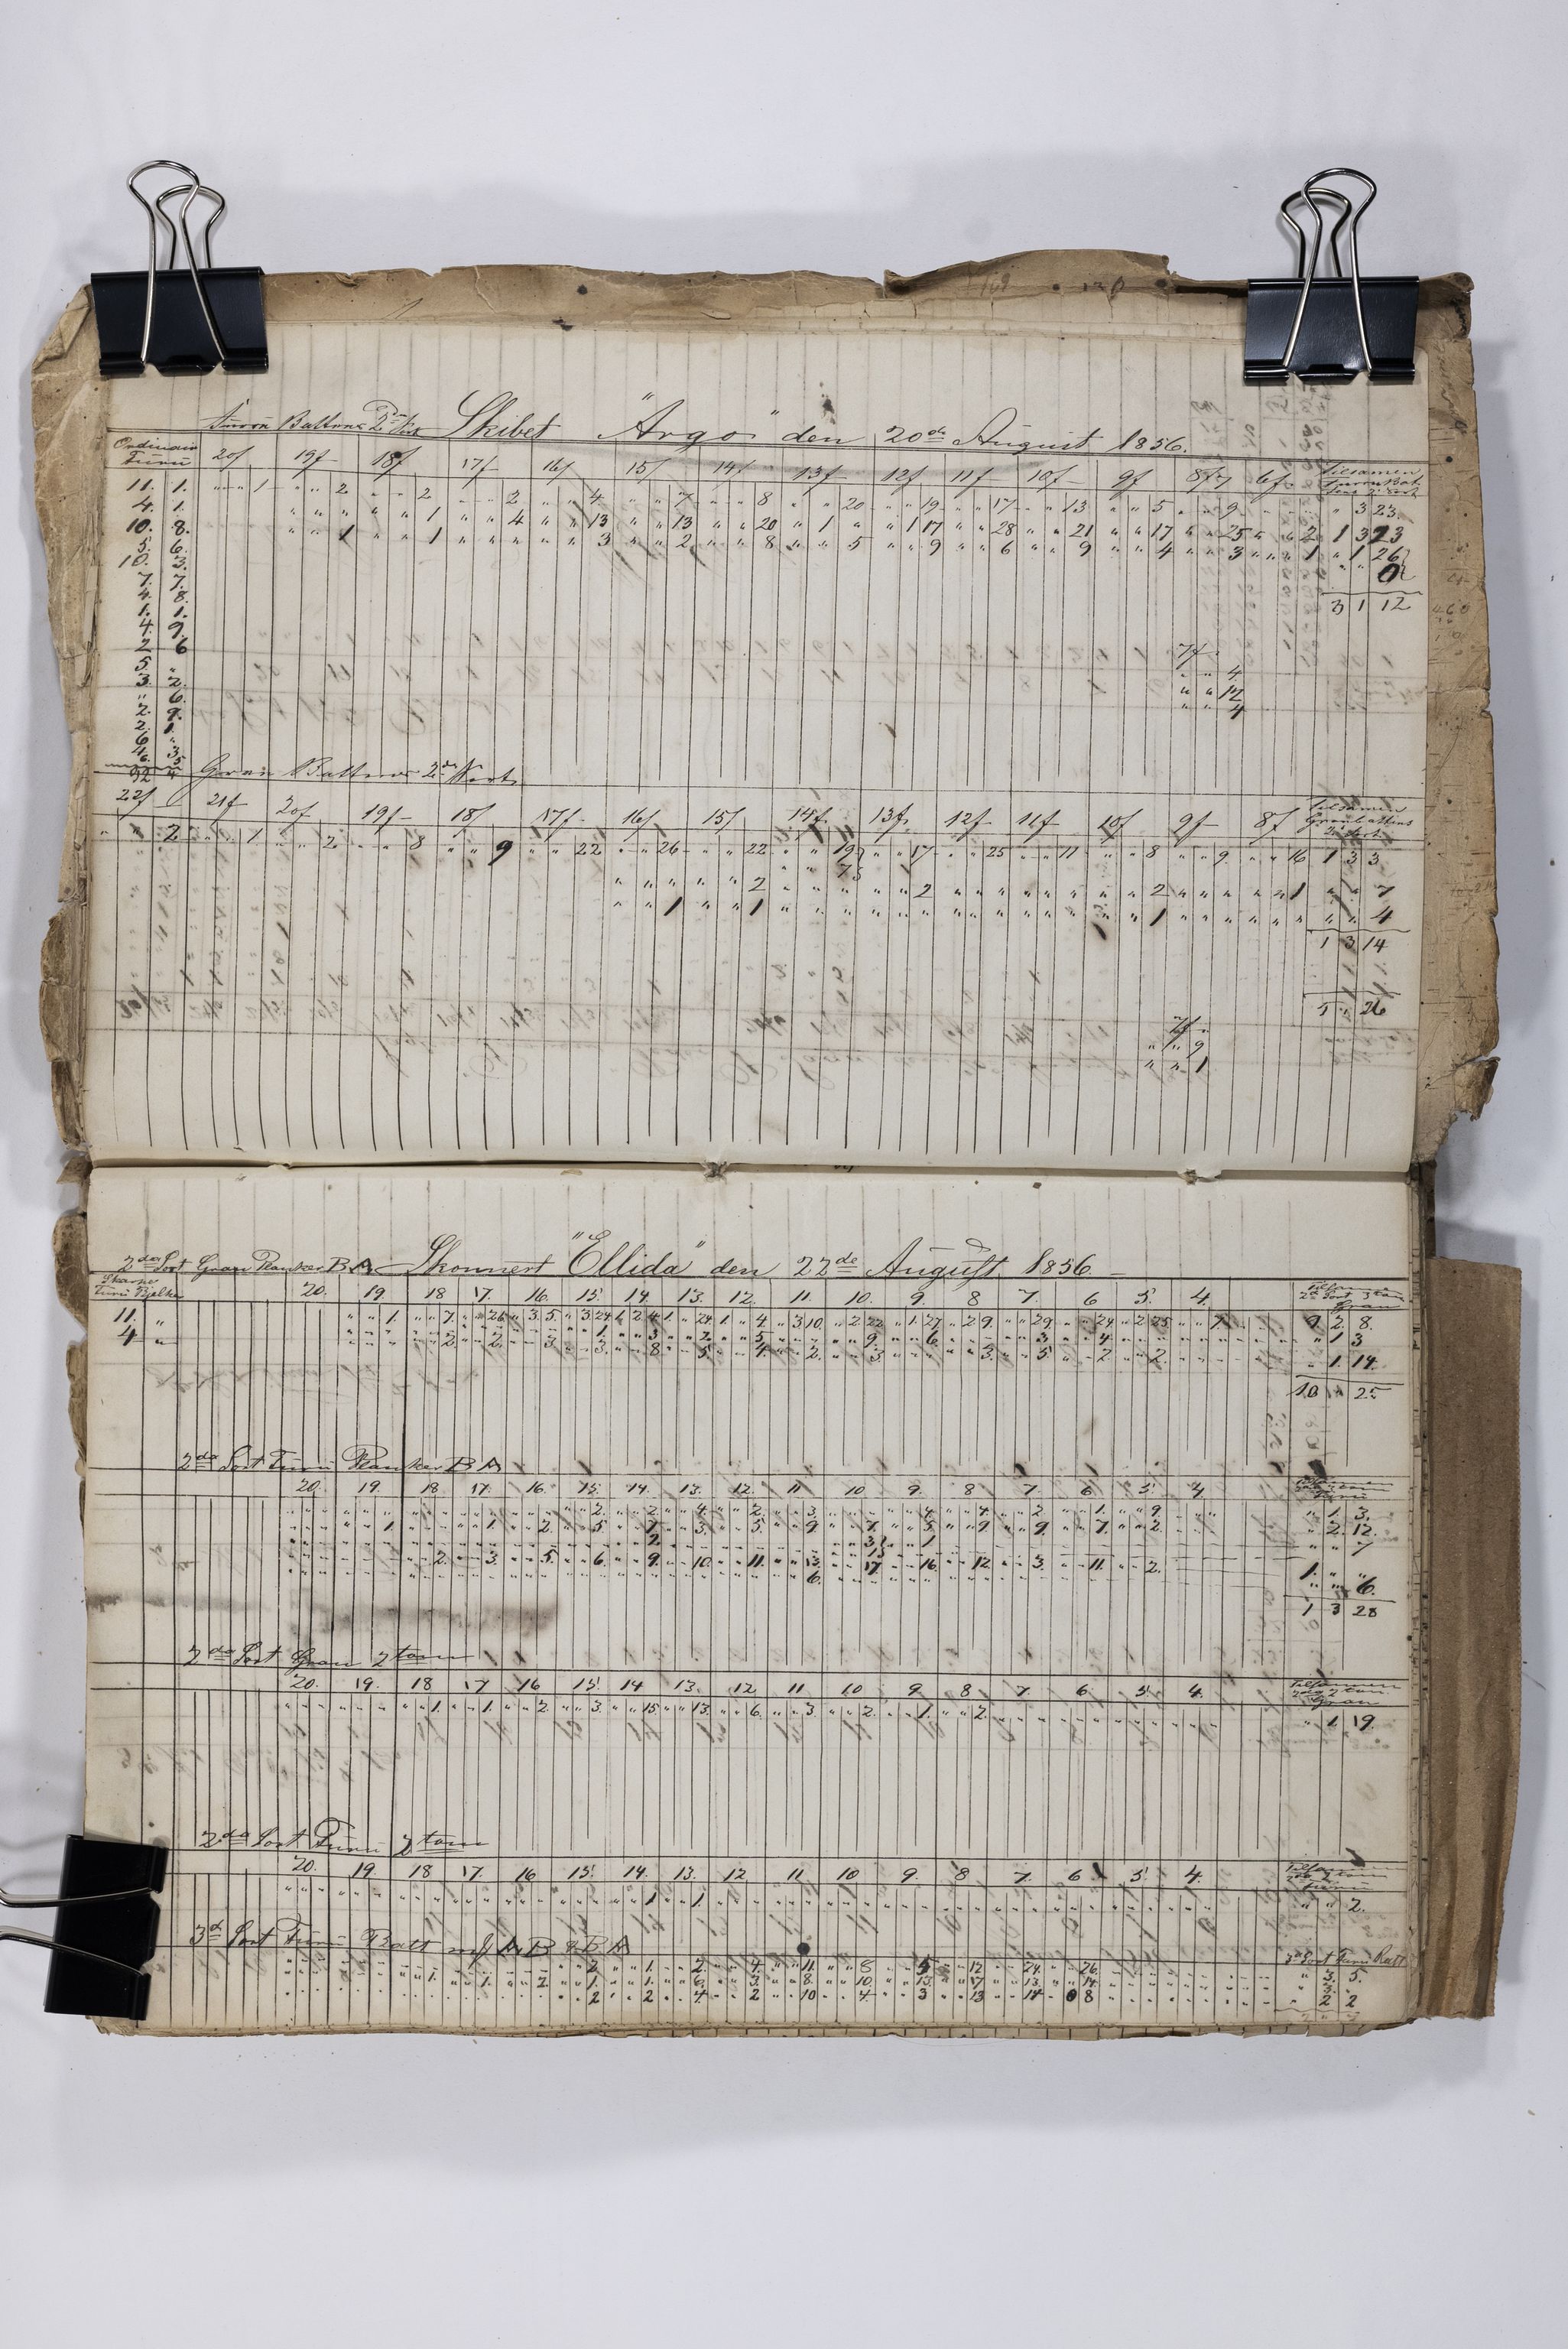 Furru Battens 2de Sort Skibet "Argo" den 20de August 1856.
Ordinair Furu 20f 19f 18f 17f 16f 15f 14f 13f 12f 11f 10f 9f 8f 6f Tilsamen Furru Bat 2de Sort
11. 1. " " 1 " " 2 " " 2 " " 2 " " 4 " " 7 " " 8 " " 20 " " 19 " " 17 " " 13 " " 5 " " 9 " 3 23
4. 1. " " " " " 1 " " 4 " " 13 " " 13 " " 20 " 1 " " 1 17 " " 28 " " 21 " " 17 " " 25 " " 2 1 3 23
10. 8. " " 1 " " 1 " " 3 " " 2 " " 8 " " 5 " " 9 " " 6 " " 9 " " 4 " " 3 " " 1 " 1 26
5. 6. " " 0
10. 3.
7. 7. 3 1 12
4. 8.
1. 1.
4. 9.
2 6 7f
5. " " " 4
3. 2. " " 12
" 6. " " 4
2. 9.
2. 1.
6 "
4. 3.
6. 5
92 4
Gran Battens 2de Sort
22f 21f 20f 19f 18f 17f 16f 15f 14f 13f 12f 11f 10f 9f 8f Tilsamen Gran Battens 2de Sort
" " 2 " " 1 " " 2 " " 8 " " 9 " " 22 " " 26 " " 22 " " 19 " " 17 " " 25 " " 11 " " 8 " " 9 " " 16 1 3 3
" " 7
" " " " " 2 " " " " " 2 " " " " " " " " 2 " " " " " 1 " " 7
" " 1 " " 1 " " " " " " " " " " " " " " 1 " " " " " " " " 4
1 3 14
5 " 26
7f
" " 9
" " 1
2da Sort Gran Planker B A Skonnert "Ellida" den 22de August 1856.
Skarpe Furu Bjelker 20. 19. 18 17. 16. 15. 14. 13. 12. 11. 10. 9. 8 7. 6 5. 4. 2da Sort 3 tom Gran
11. " " " 1. " " 7. " " 26 " 3. 5. " 3. 24 1. 2. 4. 1. " 24 1. " 4. " 3 10. " 2. 22 " 1. 27 " 2 9. " " 29 " " 24 " 2 25 " " 7 9 2 8.
4 " " " " " " 2. " " 2. " " 3. " " 1. " " 3 " " 2. " " 5 " " " " " 9. " " 6. " " " " " 3. " " 4. " 1 3
" " 3. " " 8. " " 5. " " 4. " " 2. " " 3. " " 3. " " 5. " " 2. " " 2. " 1. 14.
10 " 25
2da Sort Furu Planker B A
20. 19. 18. 17. 16. 15. 14. 13. 12. 11 10 9. 8 7. 6 5. 4
" " 2. " " 2. " " 4. " " 2. " " 3. " " 4 " " 4. " " 2 " " 1. " " 9. " 1. 3.
" " 1. " " 1. " " 2. " " 5. " " 7. " " 3. " " 5. " " 9 " " 7. " " 5 " " 9 " " 9. " " 7. " " 2. " 2. 12.
2. 3 1 " " 7
13
" " 2. " " 3. " " 5. " " 6. " " 9. " " 10. " " 11. " " 13. " " 17. " " 16. " " 12. " " 3. " " 11. " " 2. 1. " "
" " 6. " " 6.
1 3 28
2da Sort Gran 2 tom
20. 19. 18 17 16 15. 14 13. 12 11 10. 9. 8. 7. 6. 5. 4. 2 tom Gran
" " 1. " " 1. " " 2. " " 3. " " 15. " " 13. " " 6. " " 3. " " 2. " " 1. " " 2. " 1. 19.
2da Sort Furu 2 tom
20. 19. 18 17. 16 15. 14. 13. 12 11. 10 9. 8 7. 6 5. 4.
" " 1 " " 1. " " 2.
3de Sort Furu Batt A B & B A 3de Sort Furu Batt
" " 2. " " 1. " " 2. " " 4. " " 11. " " 8 " " 5 " " 12 " " 24. " " 26. " 3. 5.
" " 1. " " 1. " " 2. " " 1. " " 1. " " 6. " " 3. " " 8. " " 10. " " 13. " " 17 " " 13. " " 14. " 3. "
" " 2 " " 2 " " 4. " " 2 " " 10 " " 4 " " 3 " " 13 " " 14 " " 8 " 2 2